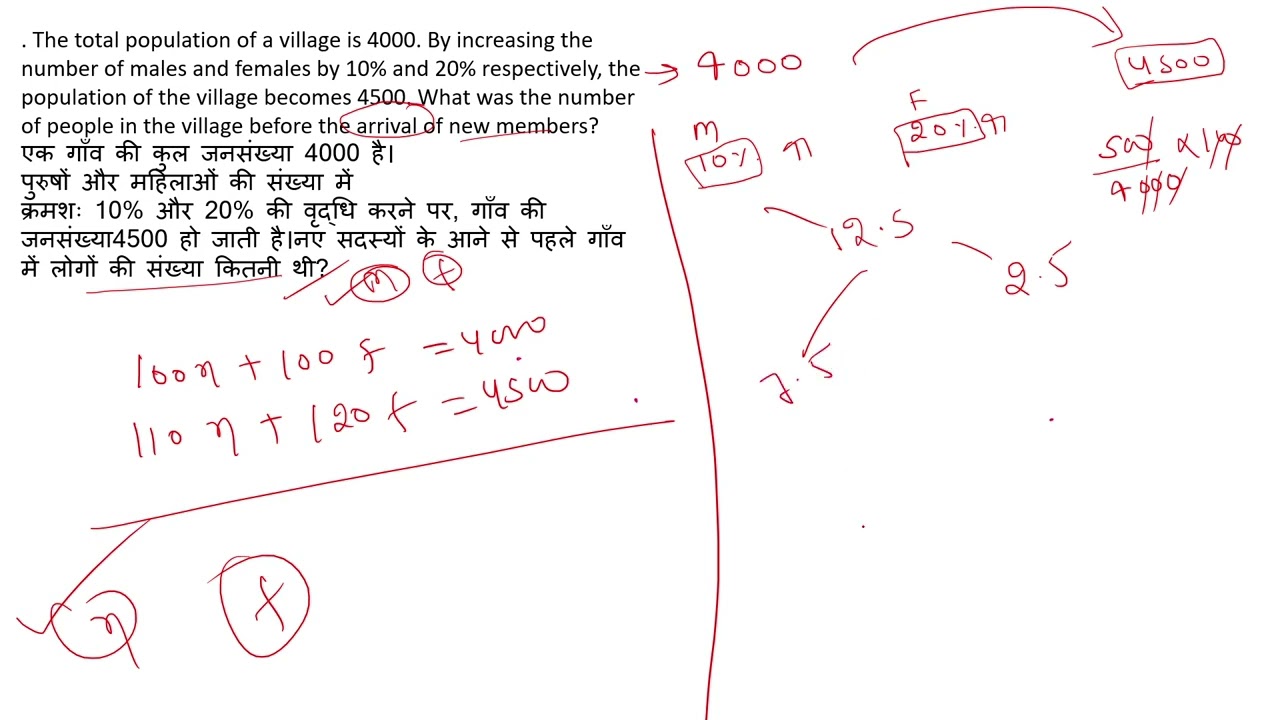 . The total population of a village is 4000. By increasing the
number of males and females by 10% and 20% respectively, the
population of the village becomes 4500. What was the number
of people in the village before the arrival of new members?
एक गाँव की कुल जनसंख्या 4000 है।
पुरुषों और महिलाओं की संख्या में
क्रमशः 10% और 20% की वृद्धि करने पर, गाँव की
जनसंख्या4500 हो जाती है।नए सदस्यों के आने से पहले गाँव
में लोगों की संख्या कितनी थी?
m f
100m + 100 f = 4000
110 m + 120 f = 4500
m f
→ 4000 4500
M F
10% ↑ 20% ↑
500 × 100
4000
12.5
2.5
7.5